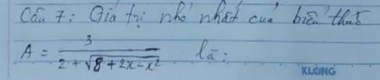 Câu 7: Giá trị nhỏ nhất của biểu thức
A = 3 / (2 + √(8 + 2x - x²)) là:
KLONG